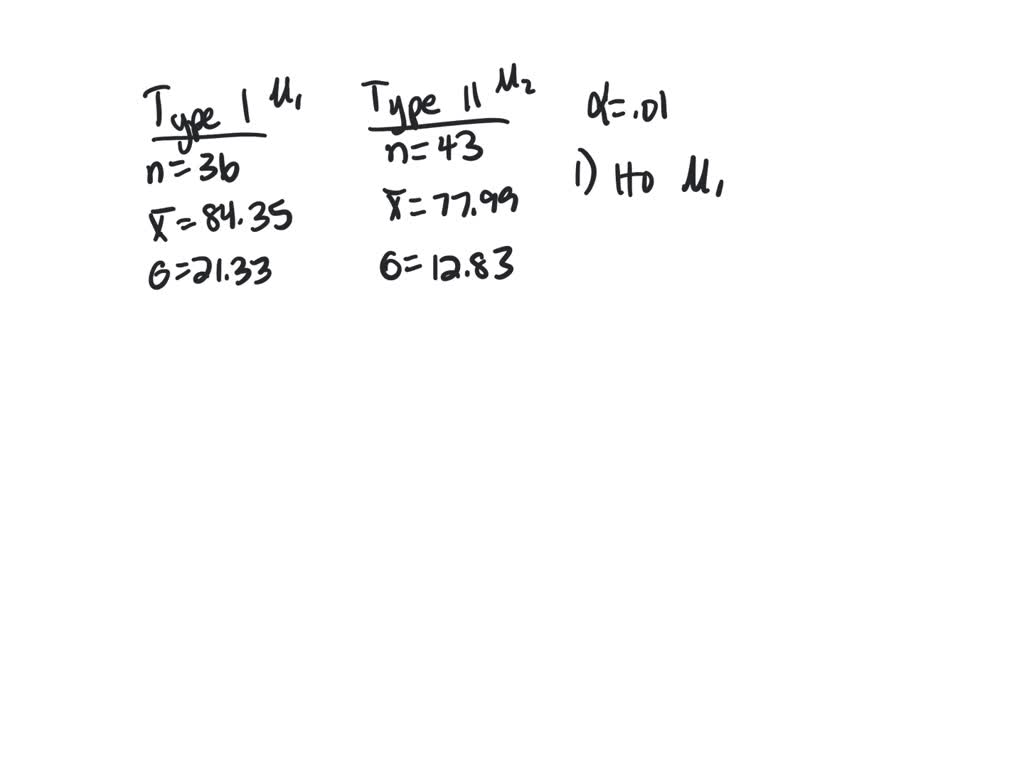 Type I μ₁
n=36
x̄=84.35
σ=21.33
Type II μ₂
n=43
x̄=77.99
σ=12.83
α=.01
1) H0 μ₁